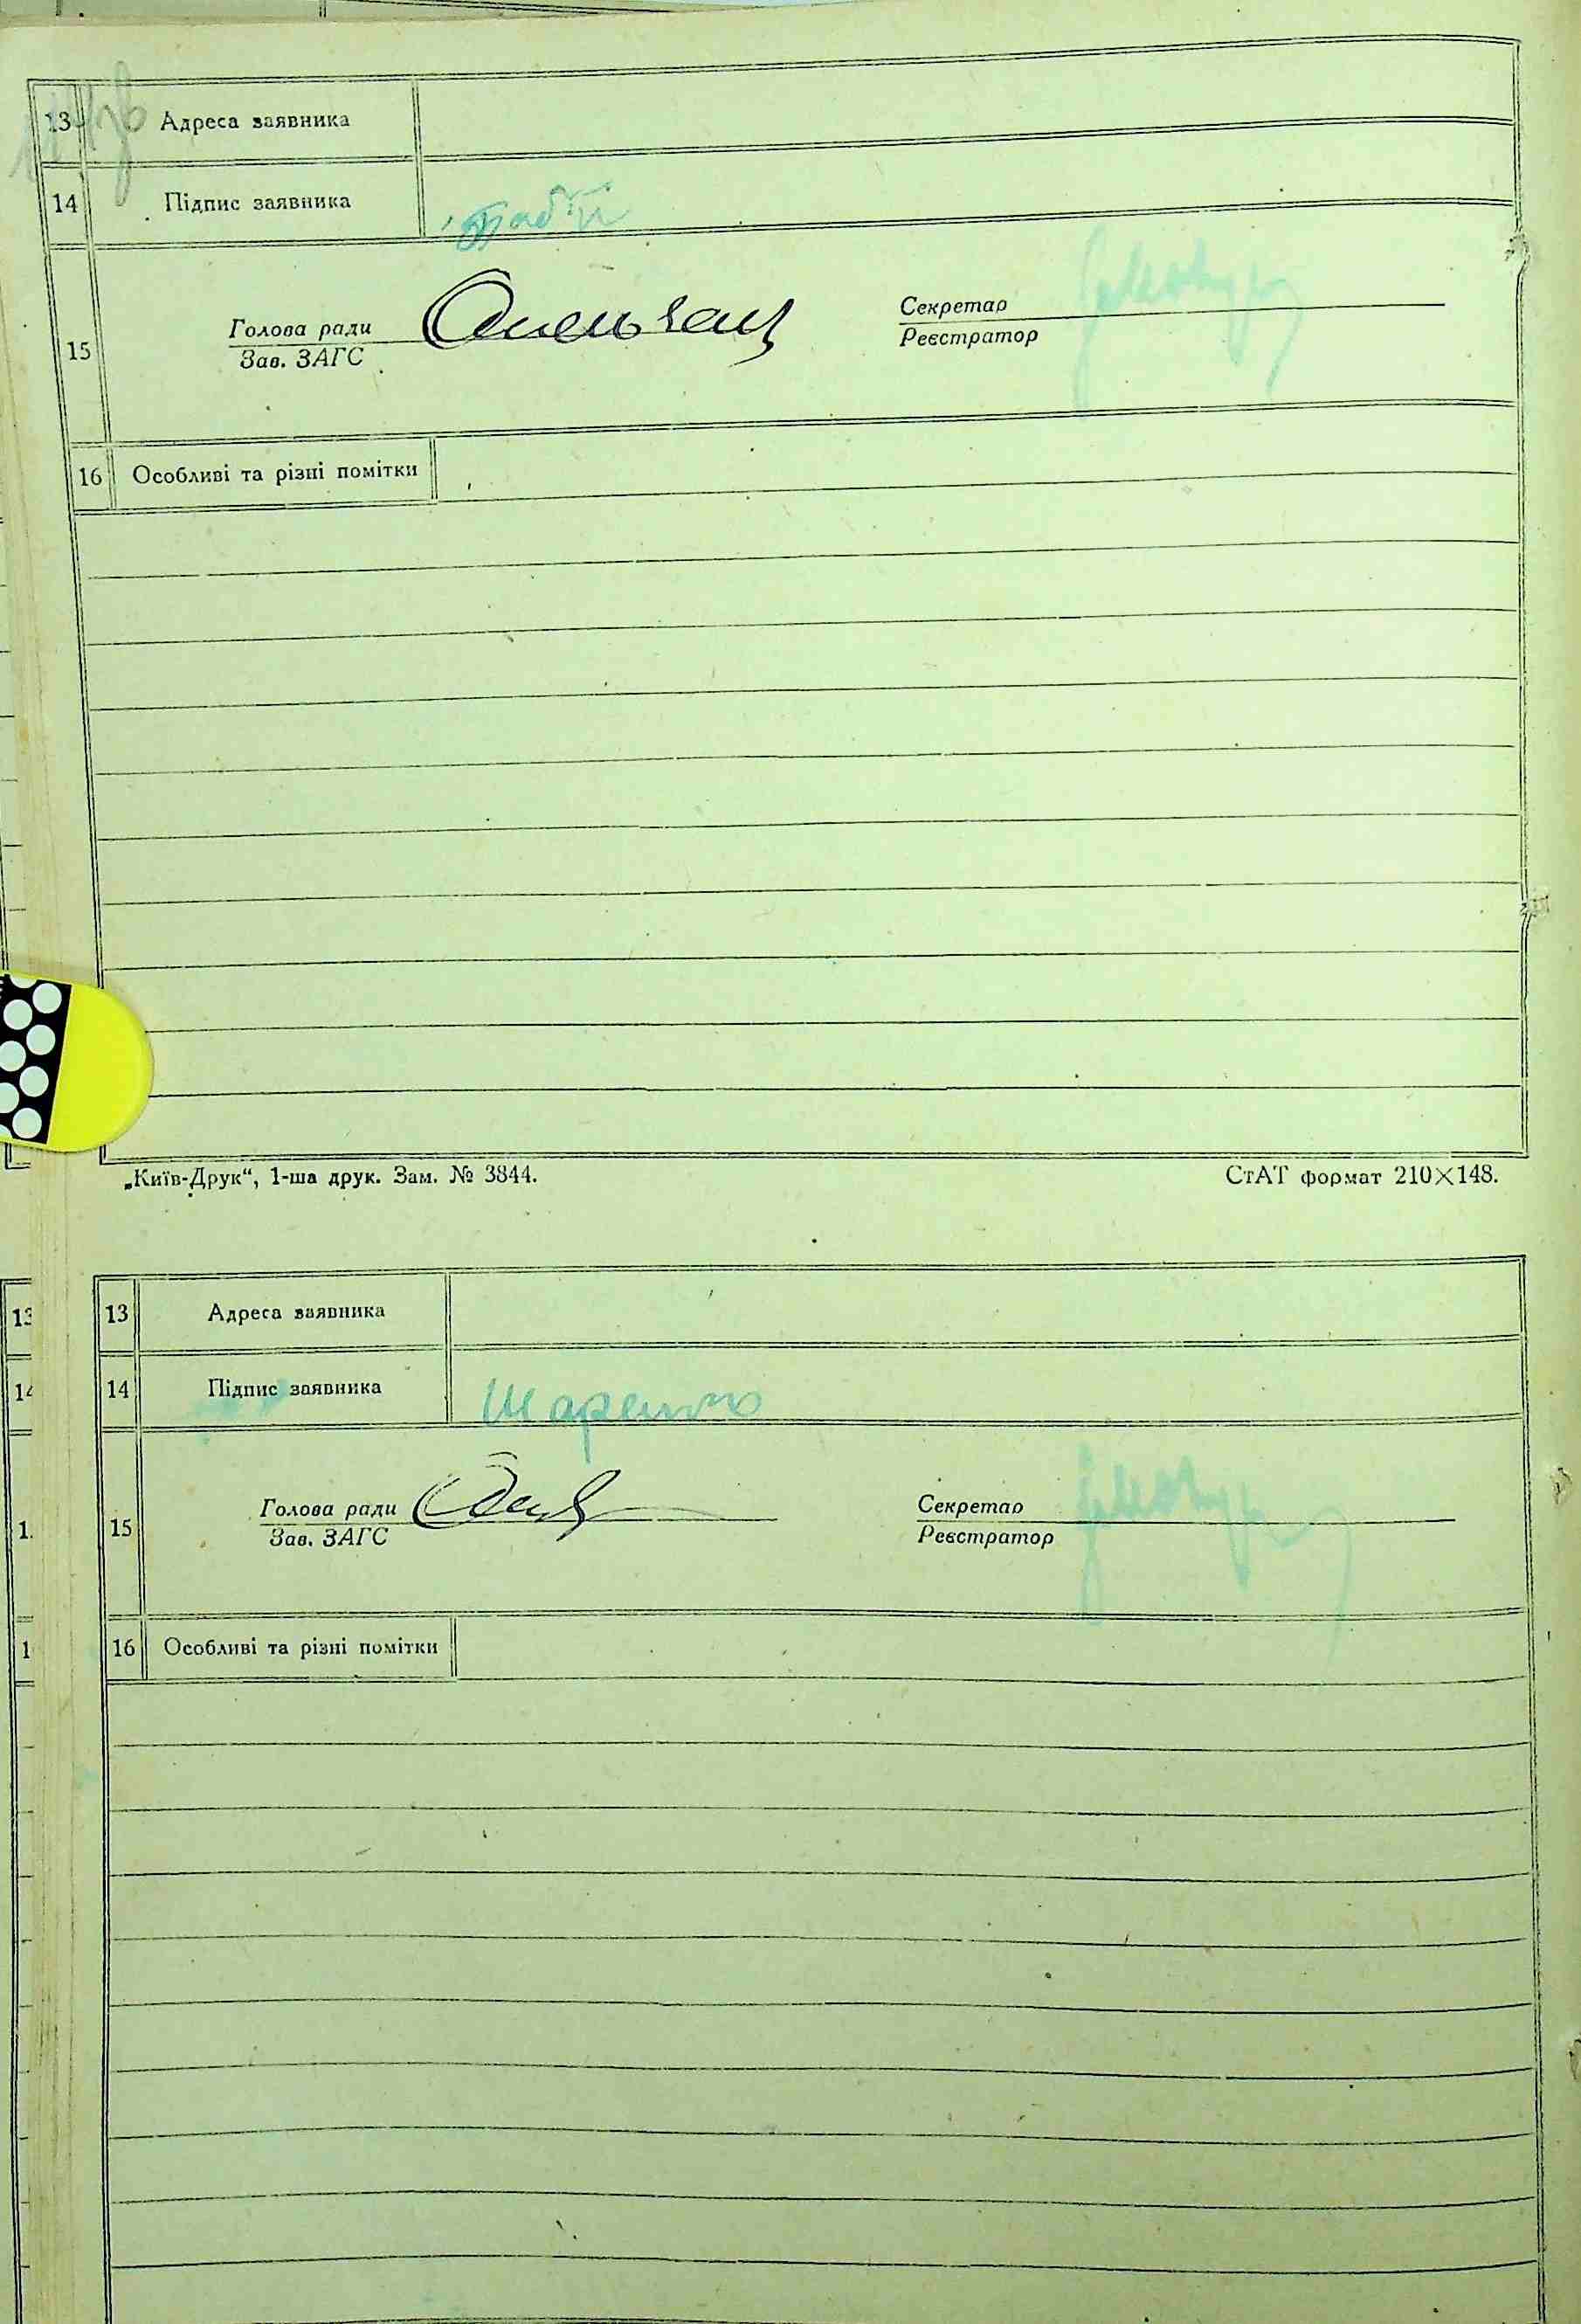 13 Адреса заявника
14 Підпис заявника
Голова ради Секретар
15
Зав. ЗАГС Реєстратор
16 Особливі та різні помітки
„Київ-Друк“, 1-ша друк. Зам. № 3844. СтАТ формат 210×148.
13 13 Адреса заявника
14 14 Підпис заявника Шаренко
Голова ради Секретар
15
Зав. ЗАГС Реєстратор
16 Особливі та різні помітки